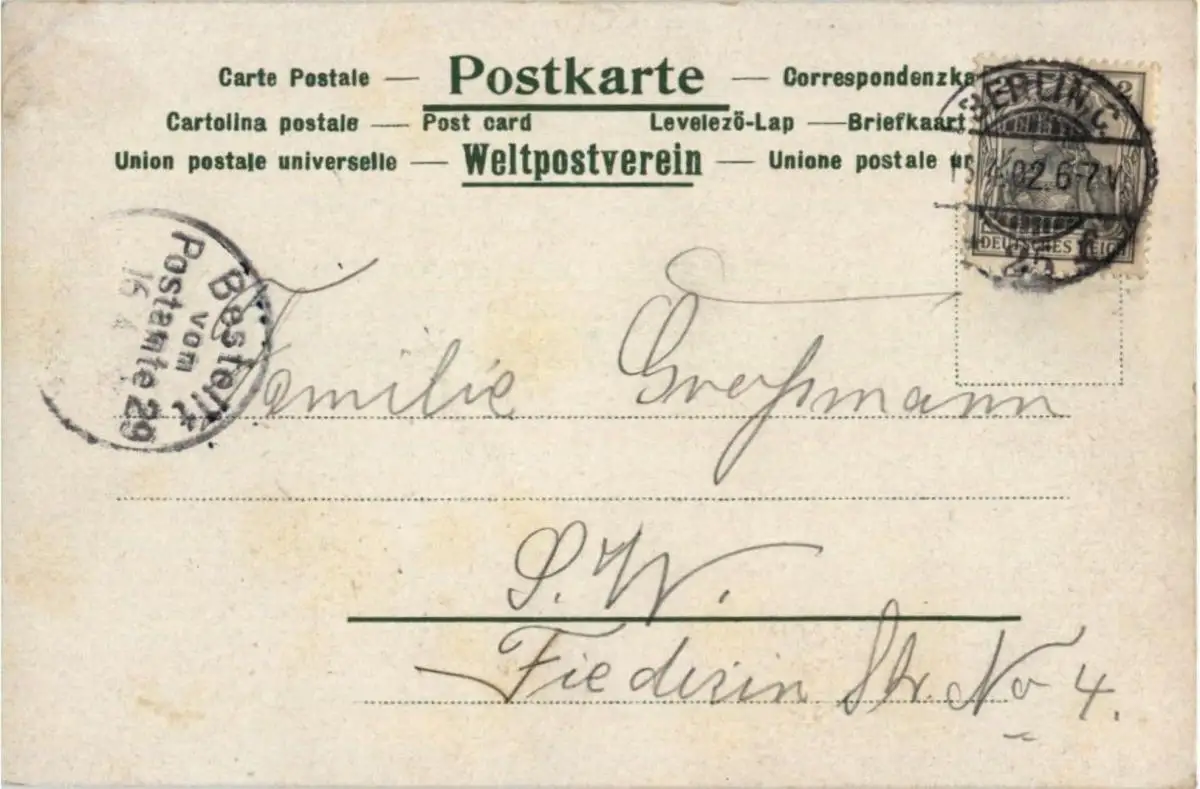 Carte Postale — Postkarte — Correspondenzka
Cartolina postale — Post card Levelezö-Lap — Briefkaart
Union postale universelle — Weltpostverein — Unione postale un
BERLIN, C.
4.02.6-7V.
25
2
DEUTSCHES REICH
Bestellt
vom
Postamte 29
16 4
Familie Großmann
S. W.
Str. No 4.